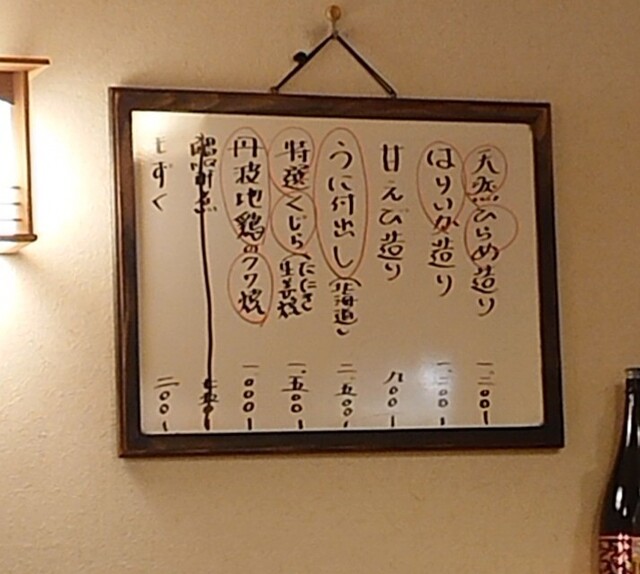 天然ひらめ造り 一、二〇〇
はりいか造り 一、二〇〇
甘えび造り 九〇〇
うに付出し(北海道) 二、五〇〇
特選くじら(たたき 生姜焼) 一、五〇〇
丹波地鶏のクワ焼 一、〇〇〇
もずく 二〇〇